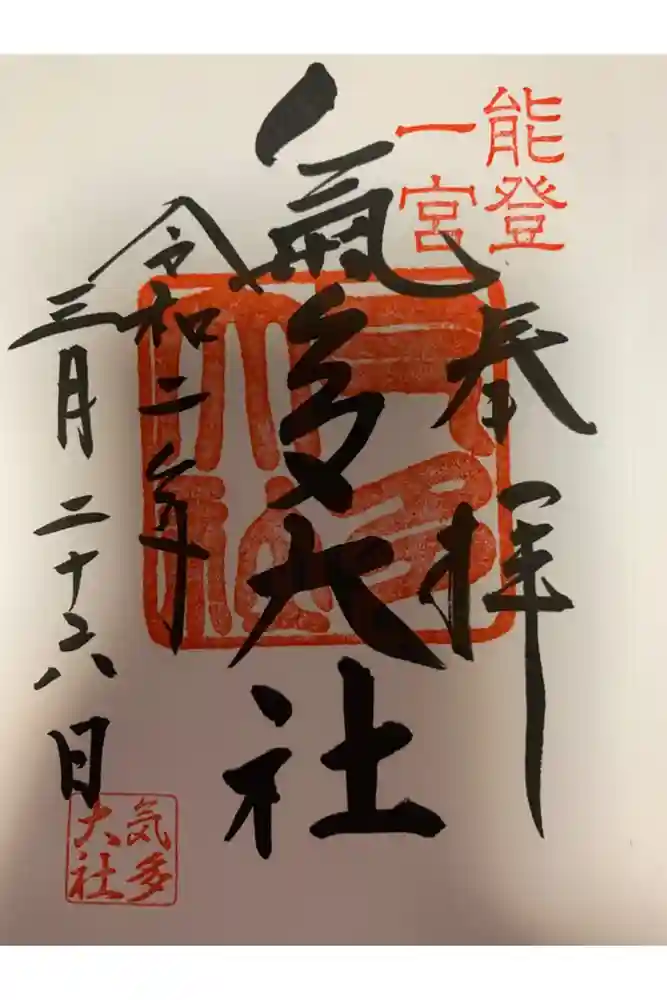 能登
一宮
奉拝
氣多大社
気多大社
令和二年
三月二十六日
気多
大社